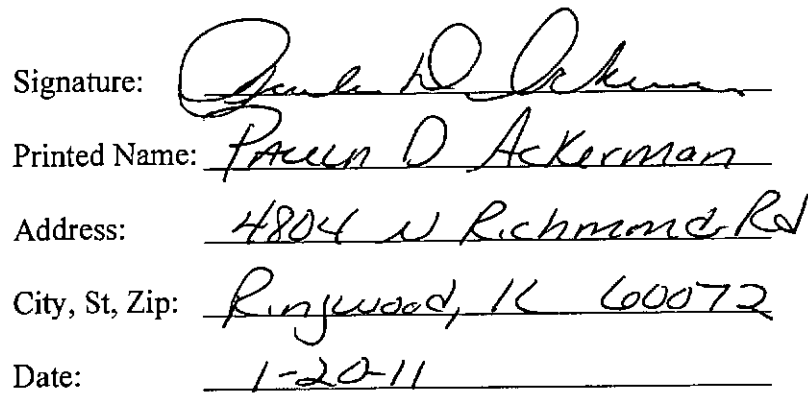 Signature: Paula D Ackerman
Printed Name: PAULA D Ackerman
Address: 4804 N Richmond Rd
City, St, Zip: Ringwood, IL 60072
Date: 1-20-11